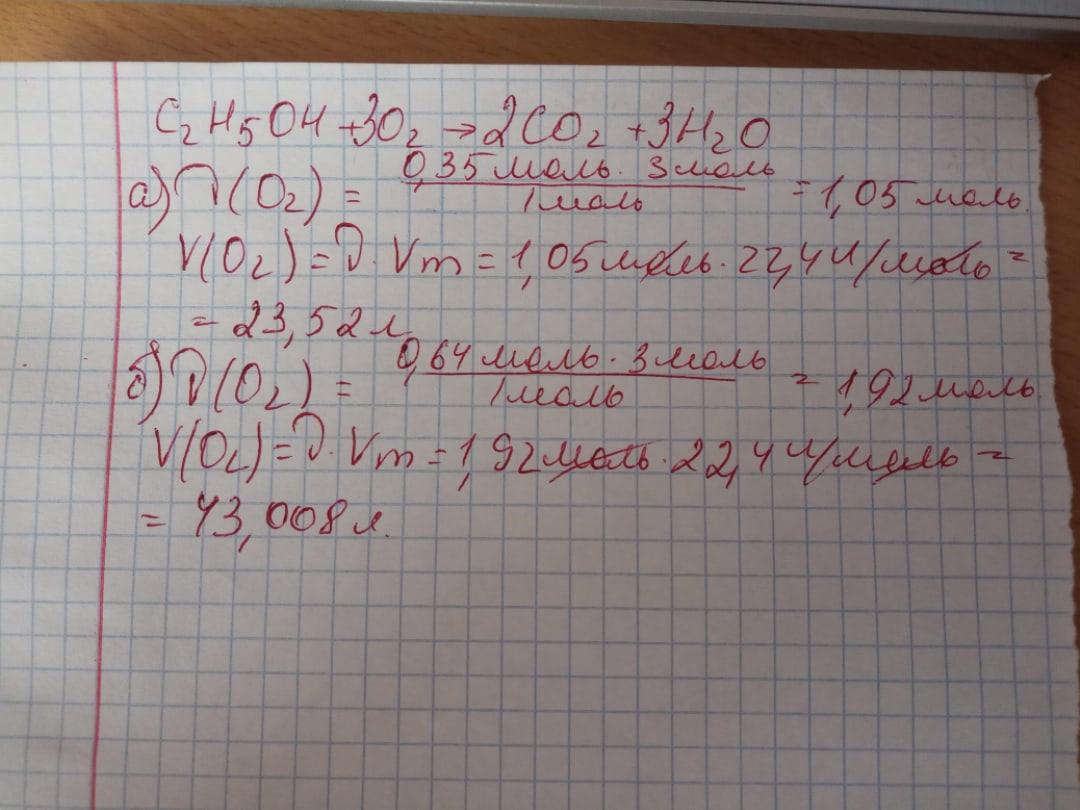 C₂H₅OH + 3O₂ → 2CO₂ + 3H₂O
а) ν(O₂) = 0,35 моль · 3 моль / 1 моль = 1,05 моль.
V(O₂) = ν · Vm = 1,05 моль · 22,4 л/моль =
= 23,52 л
б) ν(O₂) = 0,64 моль · 3 моль / 1 моль = 1,92 моль.
V(O₂) = ν · Vm = 1,92 моль · 22,4 л/моль =
= 43,008 л.